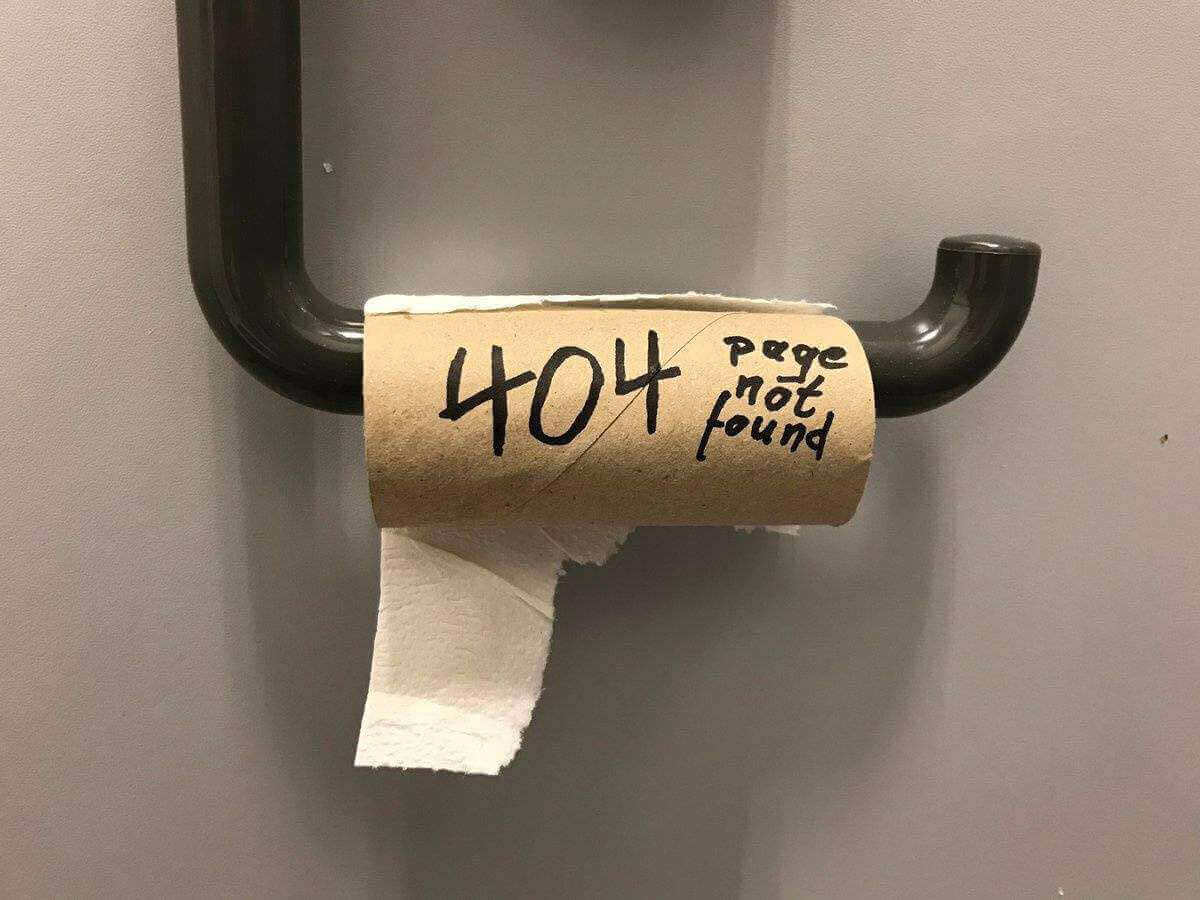 404
page
not
found